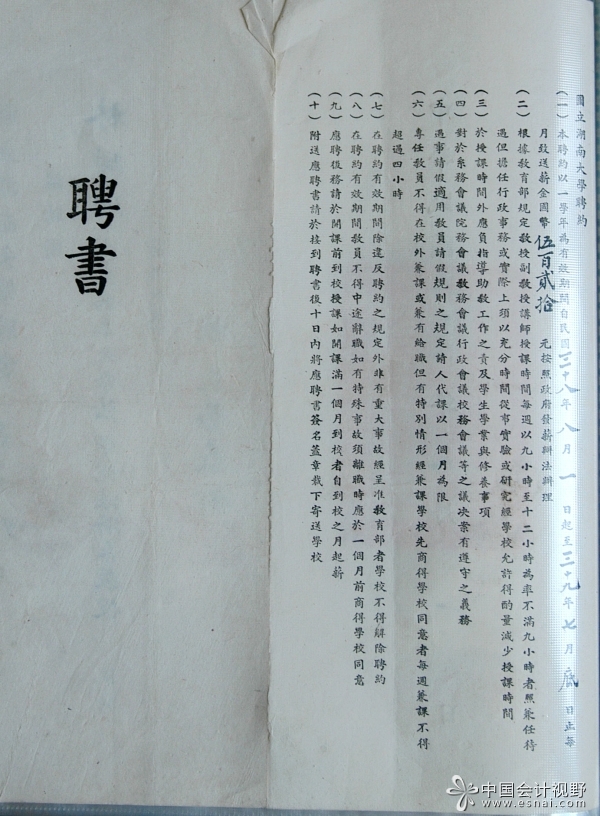 國立湖南大學聘約
(一)本聘約以一學年為有效期間自民國三十八年八月一日起至三十九年七月底日止每
月致送薪金國幣伍百貳拾元按照政府發薪辦法辦理
(二)根據教育部規定教授副教授講師授課時間每週以九小時至十二小時為率不滿九小時者照兼任待
遇但擔任行政事務或實際上須以充分時間從事實驗或研究經學校允許得酌量減少授課時間
(三)於授課時間外應負指導助教工作之責及學生學業與修養事項
(四)對於系務會議院務會議教務會議行政會議校務會議等之議決案有遵守之義務
(五)遇事請假適用教員請假規則之規定請人代課以一個月為限
(六)專任教員不得在校外兼課或兼有給職但有特別情形經兼課學校先商得學校同意者每週兼課不得
超過四小時
(七)在聘約有效期間除違反聘約之規定外非有重大事故經呈准教育部者學校不得解除聘約
(八)在聘約有效期間教員不得中途辭職如有特殊事故須離職時應於一個月前商得學校同意
(九)應聘後務請於開課前到校授課如開課滿一個月到校者自到校之月起薪
(十)附送應聘書請於接到聘書後十日內將應聘書簽名蓋章裁下寄送學校
聘書
中国会计视野
www.esnai.com